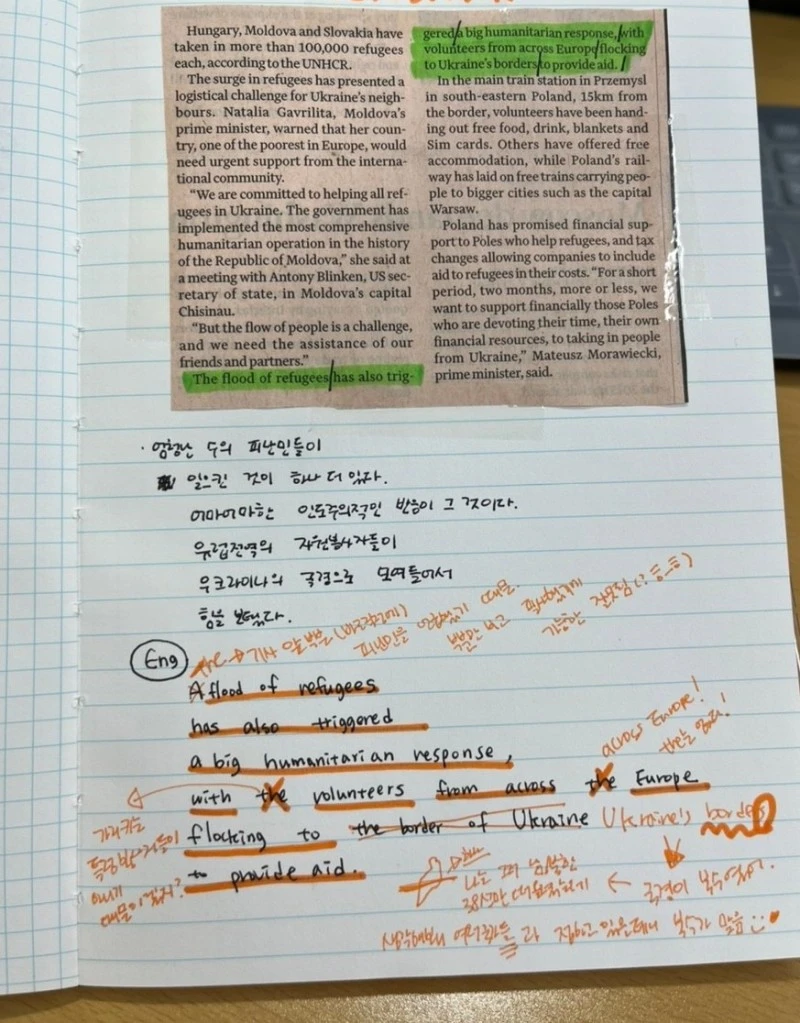 Hungary, Moldova and Slovakia have
taken in more than 100,000 refugees
each, according to the UNHCR.
The surge in refugees has presented a
logistical challenge for Ukraine's neigh-
bours. Natalia Gavrilita, Moldova's
prime minister, warned that her coun-
try, one of the poorest in Europe, would
need urgent support from the interna-
tional community.
"We are committed to helping all ref-
ugees in Ukraine. The government has
implemented the most comprehensive
humanitarian operation in the history
of the Republic of Moldova," she said at
a meeting with Antony Blinken, US sec-
retary of state, in Moldova's capital
Chisinau.
"But the flow of people is a challenge,
and we need the assistance of our
friends and partners."
The flood of refugees/has also trig-
gered/a big humanitarian response,/with
volunteers from across Europe/flocking
to Ukraine's borders/to provide aid./
In the main train station in Przemysl
in south-eastern Poland, 15km from
the border, volunteers have been hand-
ing out free food, drink, blankets and
Sim cards. Others have offered free
accommodation, while Poland's rail-
way has laid on free trains carrying peo-
ple to bigger cities such as the capital
Warsaw.
Poland has promised financial sup-
port to Poles who help refugees, and tax
changes allowing companies to include
aid to refugees in their costs. "For a short
period, two months, more or less, we
want to support financially those Poles
who are devoting their time, their own
financial resources, to taking in people
from Ukraine," Mateusz Morawiecki,
prime minister, said.
· 엄청난 수의 피난민들이
일으킨 것이 하나 더 있다.
어마어마한 인도주의적인 반응이 그 것이다.
유럽전역의 자원봉사자들이
우크라이나의 국경으로 모여들어서
힘을 보탰다.
Eng
The → 기사 앞부분 (바로전에)
피난민을 언급했기 때문.
A flood of refugees
has also triggered
a big humanitarian response,
across Europe!
the는 없다!
with the volunteers from across the Europe
flocking to the border of Ukraine Ukraine's borders
to provide aid.
국경이 복수였어.
생각해봐 여러 나라들과 접하고 있을테니 복수가 맞음